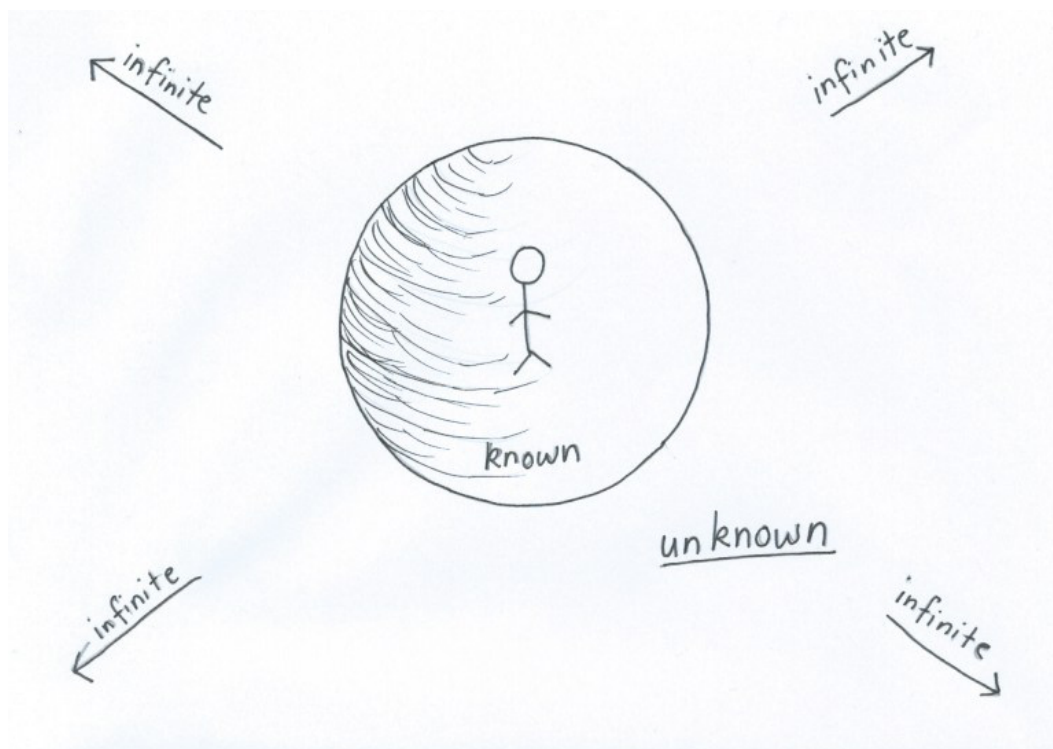 infinite
infinite
known
unknown
infinite
infinite